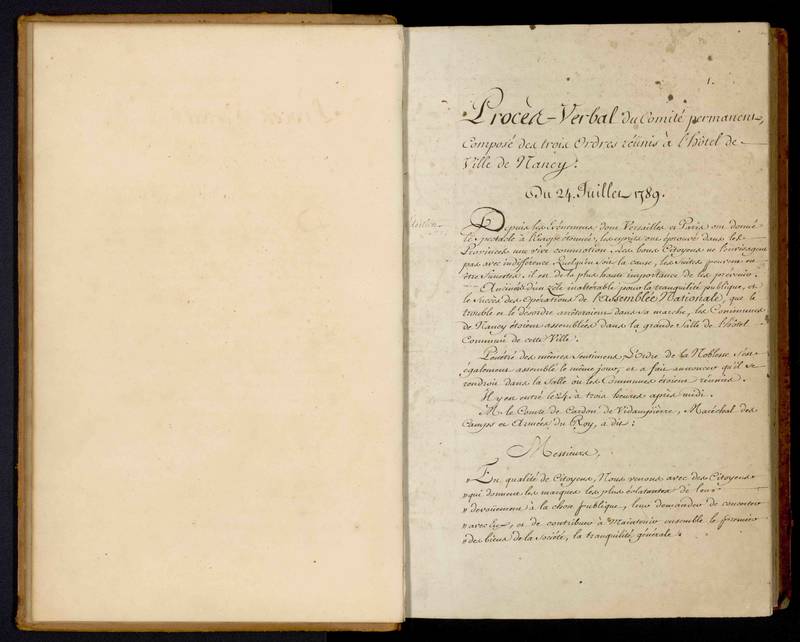 1.
Procès-Verbal du Comité permanent,
Composé des trois Ordres réunis à l'hôtel de
Ville de Nancy.
Du 24. Juillet 1789.
Depuis les Evénemens dont Versailles et Paris ont donné
le Spectacle à l'Europe étonnée, les esprits ont éprouvé dans les
Provinces une vive commotion. Les bons Citoyens ne l'envisagent
pas avec indifférence. Quelqu'en soit la cause, les Suites peuvent en
être funestes. il est de la plus haute importance de les prévenir.
Animés d'un zèle inaltérable pour la tranquilité publique, et
le Succès des Opérations de l'Assemblée Nationale, que le
trouble et le désordre arrêteroient dans sa marche, les Communes
de Nancy étoient assemblées dans la grande Salle de l'hôtel
Commun de cette Ville.
Pénétré des mêmes Sentimens, l'Ordre de la Noblesse s'est
également assemblé le même jour, et a fait annoncer qu'il se
rendroit dans la Salle où les Communes étoient réunies.
Il y est entré le 24. à trois heures après midi.
M. le Comte de Cardon de Vidampierre, Maréchal des
Camps et Armées du Roy, a dit :
Messieurs,
"En qualité de Citoyens, Nous venons avec des Citoyens
"qui donnent les marques les plus éclatantes de leur
"dévouement à la chose publique, leur demander de concerter
"avec eux, et de contribuer à Maintenir ensemble le premier
"des biens de la Société, la tranquilité générale.